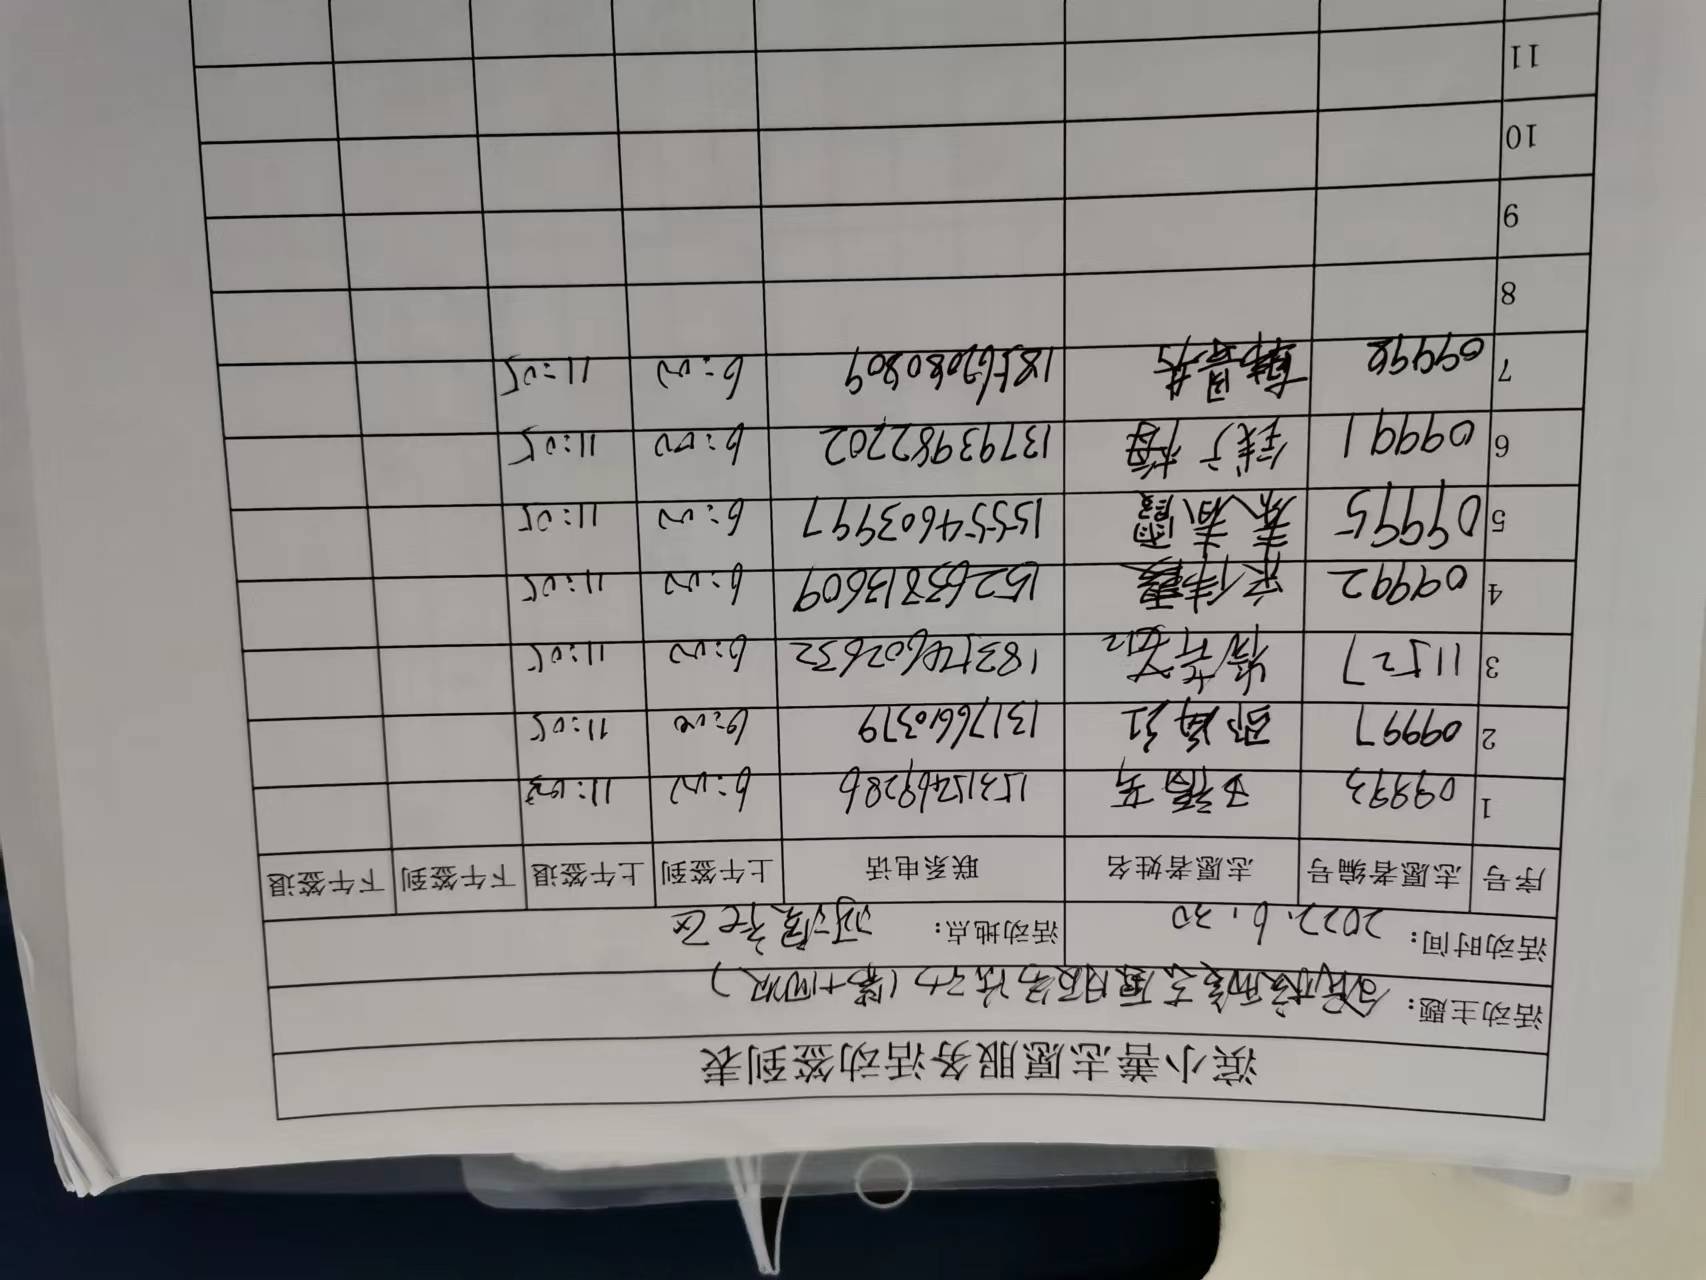 滨小善志愿服务活动签到表
活动主题: 全民核酸检测志愿服务活动(第十四次)
活动时间: 2022.6.30 活动地点: 河滨社区
序号 志愿者编号 志愿者姓名 联系电话 上午签到 上午签退 下午签到 下午签退
1 09993 15315269286 6:00 11:05
2 09997 邵海红 1317660379 6:00 11:05
3 11527 18354602632 6:00 11:05
4 09992 宋伟霞 15263813609 6:00 11:05
5 09995 秦春霞 15554603997 6:00 11:05
6 09991 钱广梅 13793982202 6:00 11:05
7 09998 18562080809 6:00 11:05
8
9
10
11